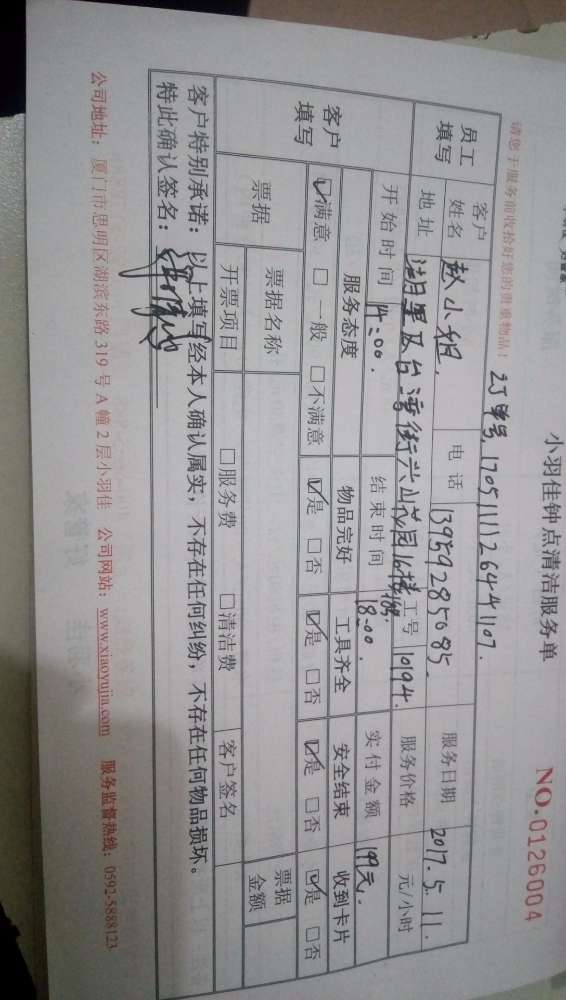 小羽佳钟点清洁服务单
NO.0126004
请您于服务前收拾好您的贵重物品!
2J单号.1705111126441107.
员工填写 客户姓名 赵小姐. 电话 13959285085. 服务日期 2017.5.11.
地址 湖里区台湾街六山花园16楼 工号 10194. 服务价格 元/小时
客户填写 开始时间 14=00. 结束时间 18=00. 实付金额 199元.
服务态度 物品完好 工具齐全 安全结束 收到卡片
☑满意 □一般 □不满意 ☑是 □否 ☑是 □否 ☑是 □否 ☑是 □否
票据 票据名称 票据金额
开票项目 □服务费 □清洁费 客户签名
客户特别承诺:以上填写经本人确认属实,不存在任何纠纷,不存在任何物品损坏。
特此确认签名:
公司地址:厦门市思明区湖滨东路319号A幢2层小羽佳 公司网站:www.xiaoyujia.com 服务监督热线:0592-5888123